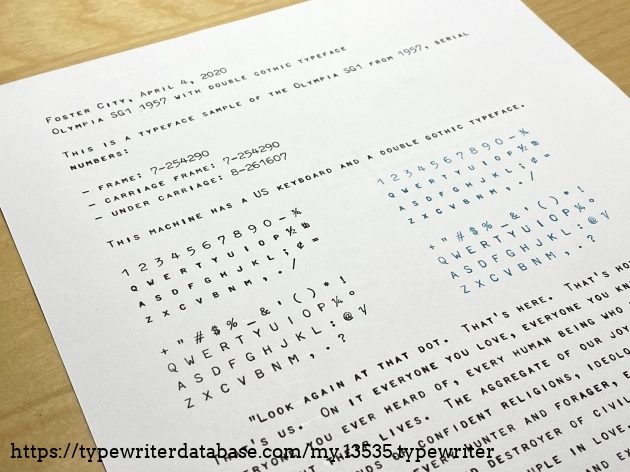 Foster City, April 4, 2020
Olympia SG1 1957 with double gothic typeface
This is a typeface sample of the Olympia SG1 from 1957, serial
numbers:
– Frame: 7-254290
– Carriage Frame: 7-254290
– Under Carriage: 8-261607
This machine has a US keyboard and a double gothic typeface.
1 2 3 4 5 6 7 8 9 0 –
q w e r t y u i o p ½
a s d f g h j k l ; ¢ =
z x c v b n m , . /
+ " # $ % _ & ' ( ) * !
Q W E R T Y U I O P ¼ °
A S D F G H J K L : @ √
Z X C V B N M , . ?
1 2 3 4 5 6 7 8 9 0 –
q w e r t y u i o p ½
a s d f g h j k l ; ¢ =
z x c v b n m , . /
+ " # $ % _ & ' ( ) * !
Q W E R T Y U I O P ¼ °
A S D F G H J K L : @ √
Z X C V B N M , . ?
"Look again at that dot. That's here. That's
That's us. On it everyone you love, everyone you
everyone you ever heard of, every human being who
their lives. The aggregate of our joy
of confident religions,
every hunter and forager,
destroyer of
in love.
https://typewriterdatabase.com/my.13535.typewriter